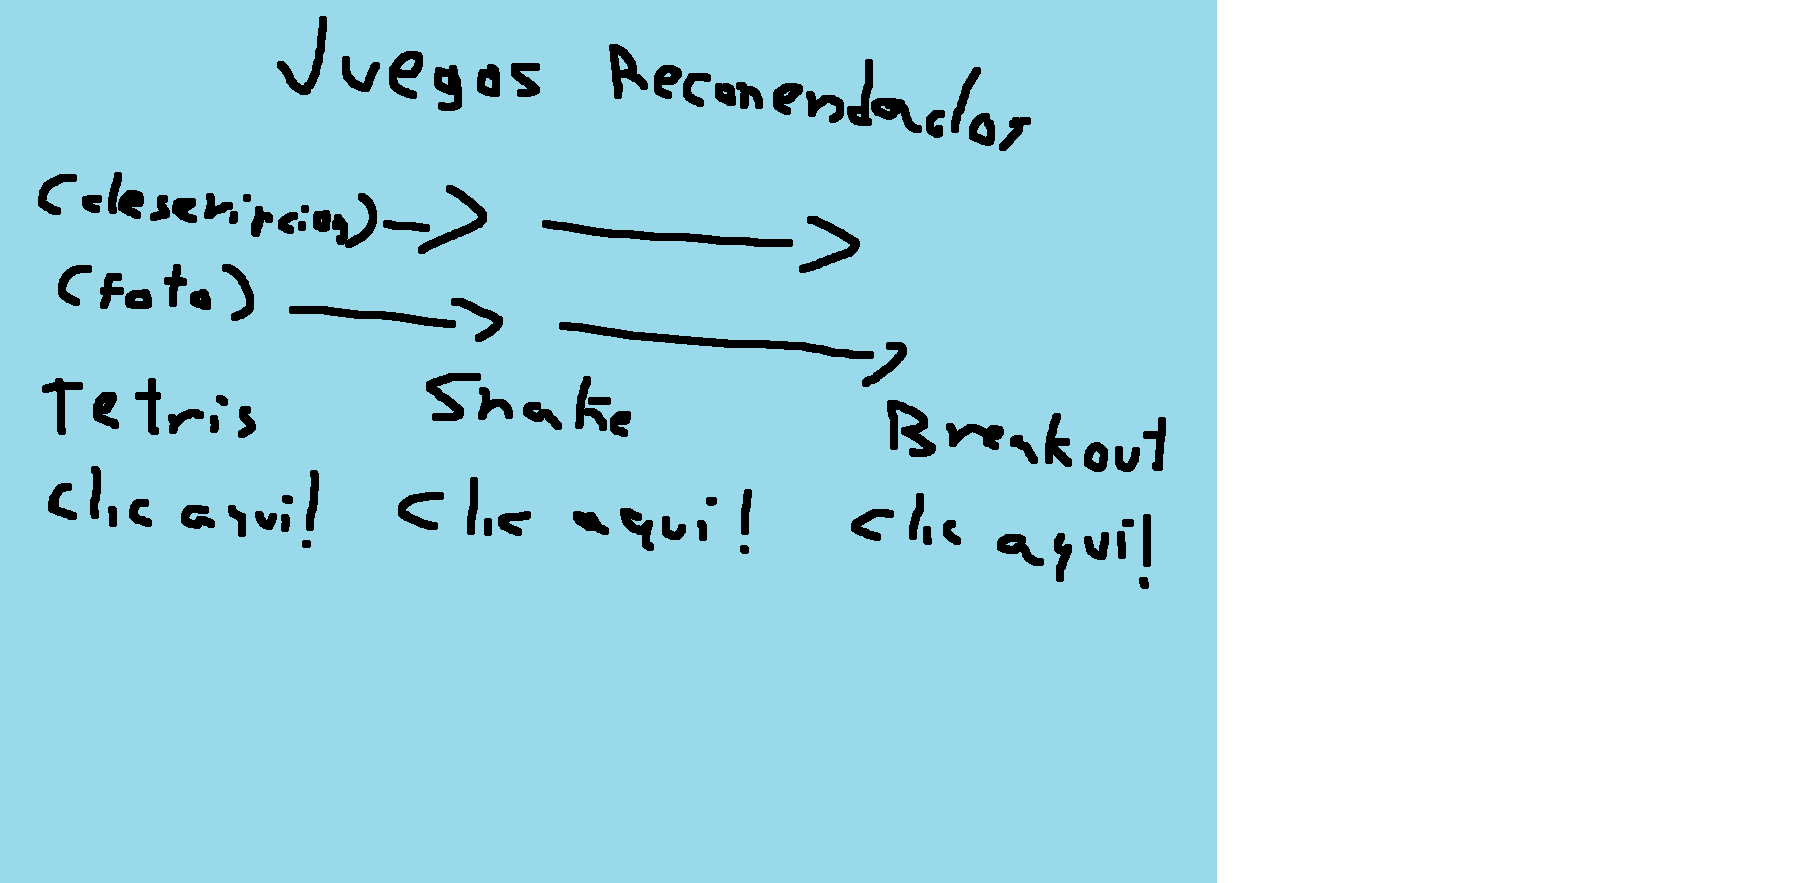 Juegos Recomendados
(descripcion)
(foto)
Tetris Snake Breakout
Clic aqui! Clic aqui! Clic aqui!